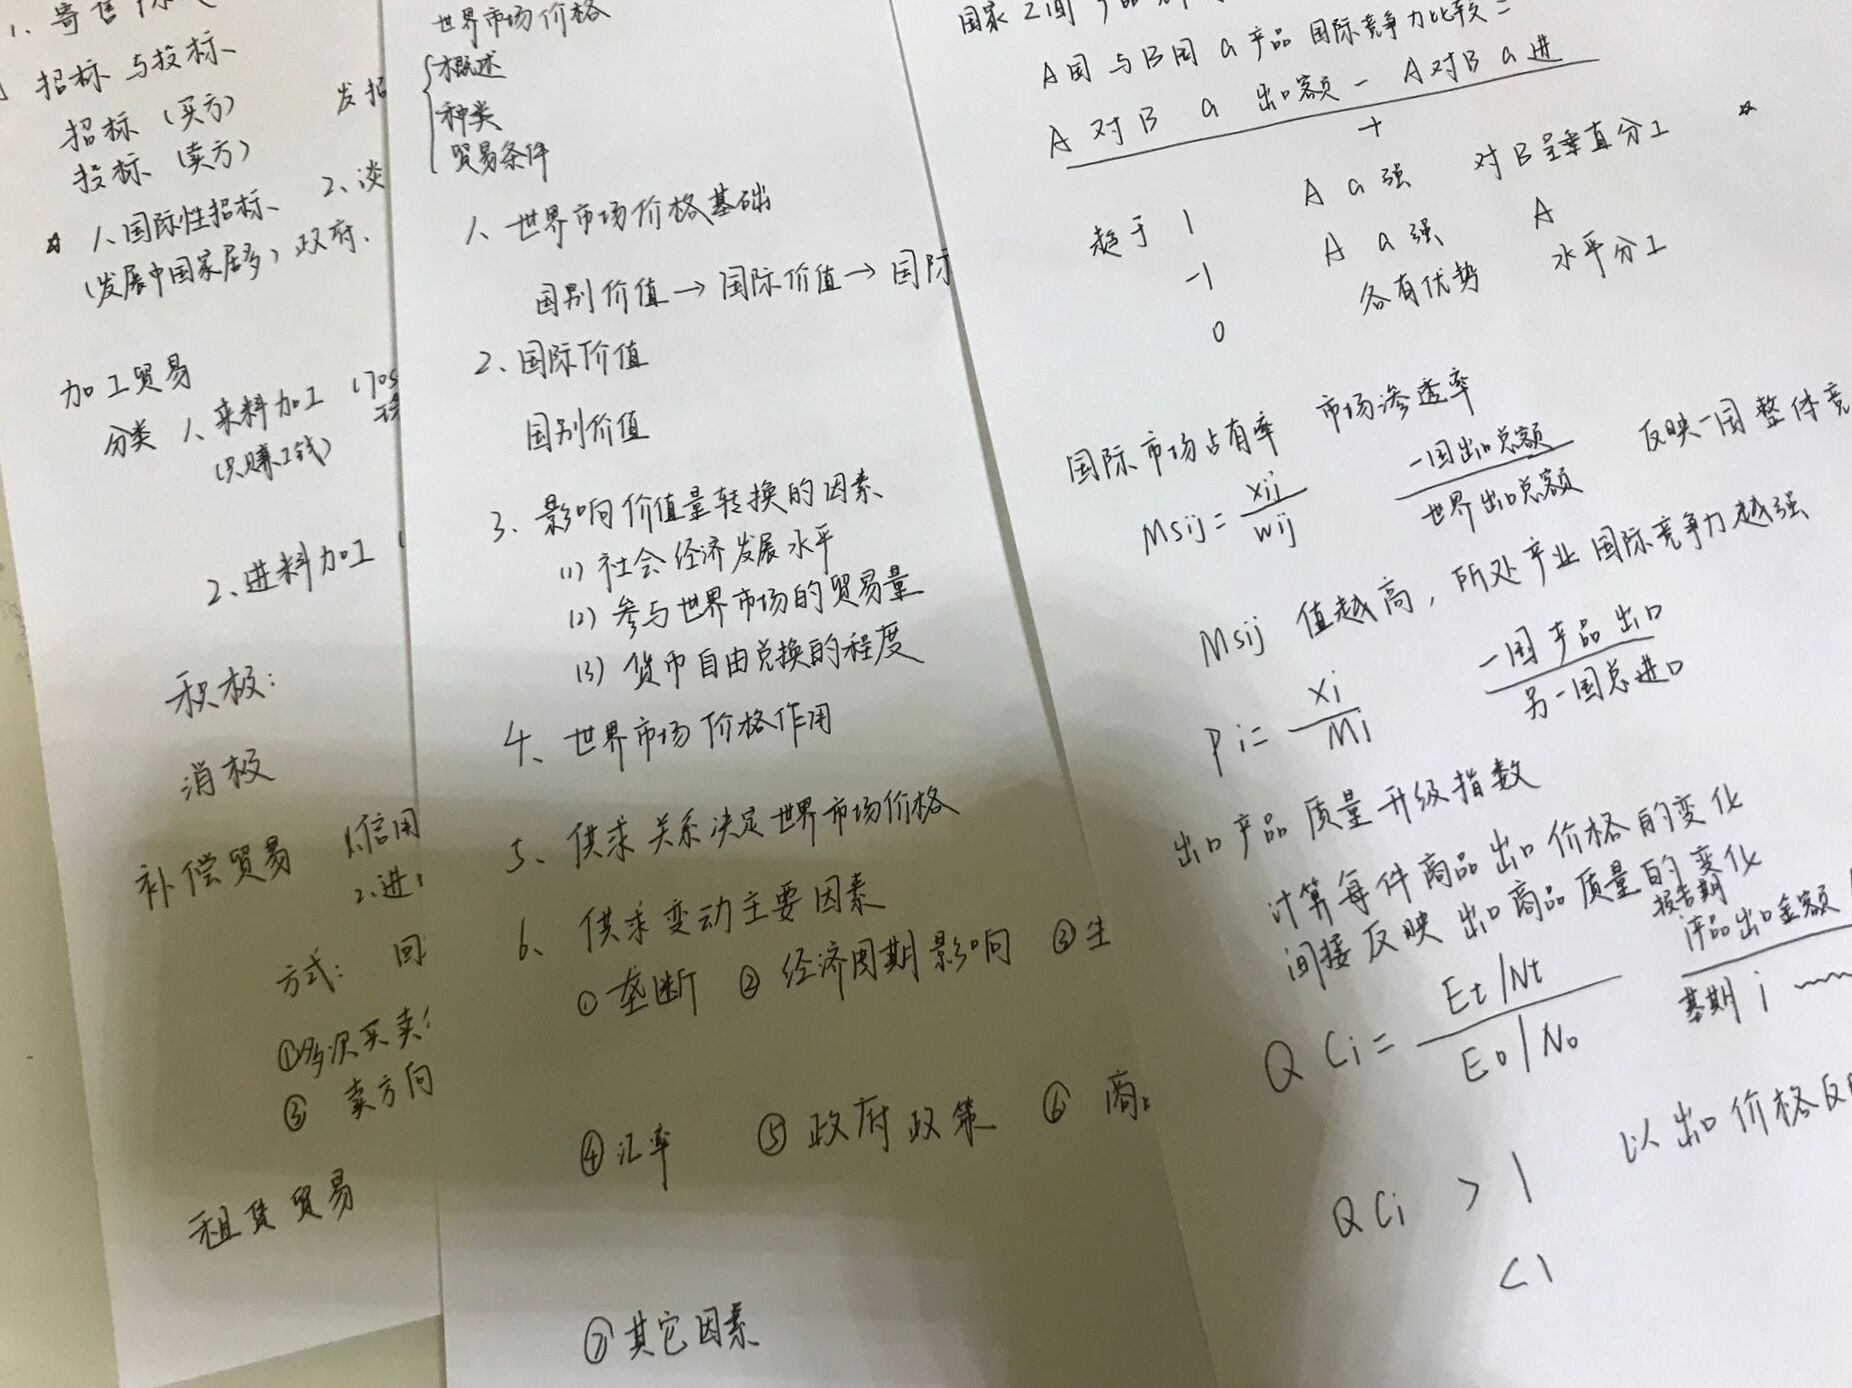 1、寄售
招标与投标、
招标（买方） 发招
投标、（卖方）
1、国际性招标、 2、谈
（发展中国家居多）政府、
加工贸易
分类 1、来料加工
（只赚工钱）
2、进料加工（
积极：
消极
补偿贸易 1.信用
2、进
方式： 回
①多次买卖
③ 卖方向
租赁贸易
世界市场价格
概述
种类
贸易条件
1、世界市场价格基础
国别价值→国际价值→国际
2、国际价值
国别价值
3、影响价值量转换的因素
(1) 社会经济发展水平
(2) 参与世界市场的贸易量
(3) 货币自由兑换的程度
4、世界市场价格作用
5、供求关系决定世界市场价格
6、供求变动主要因素
①垄断 ②经济周期影响 ③生
④汇率 ⑤政府政策 ⑥商
⑦其它因素
国家之间产品
A国与B国 a产品 国际竞争力比较=
A对B a 出口额 - A对B a进
+
趋于 1 A a强 对B呈垂直分工
-1 A a强 A
0 各有优势 水平分工
国际市场占有率 市场渗透率
Msij = xij / wij 一国出口总额 / 世界出口总额 反映一国整体竞
Msij 值越高，所处产业国际竞争力越强
Pi = Xi / Mi 一国产品出口 / 另一国总进口
出口产品质量升级指数
计算每件商品出口价格的变化
间接反映出口商品质量的变化
QCi = Et/Nt / E0/N0 报告期i产品出口金额 / 基期i
QCi > 1 以出口价格反映
<1